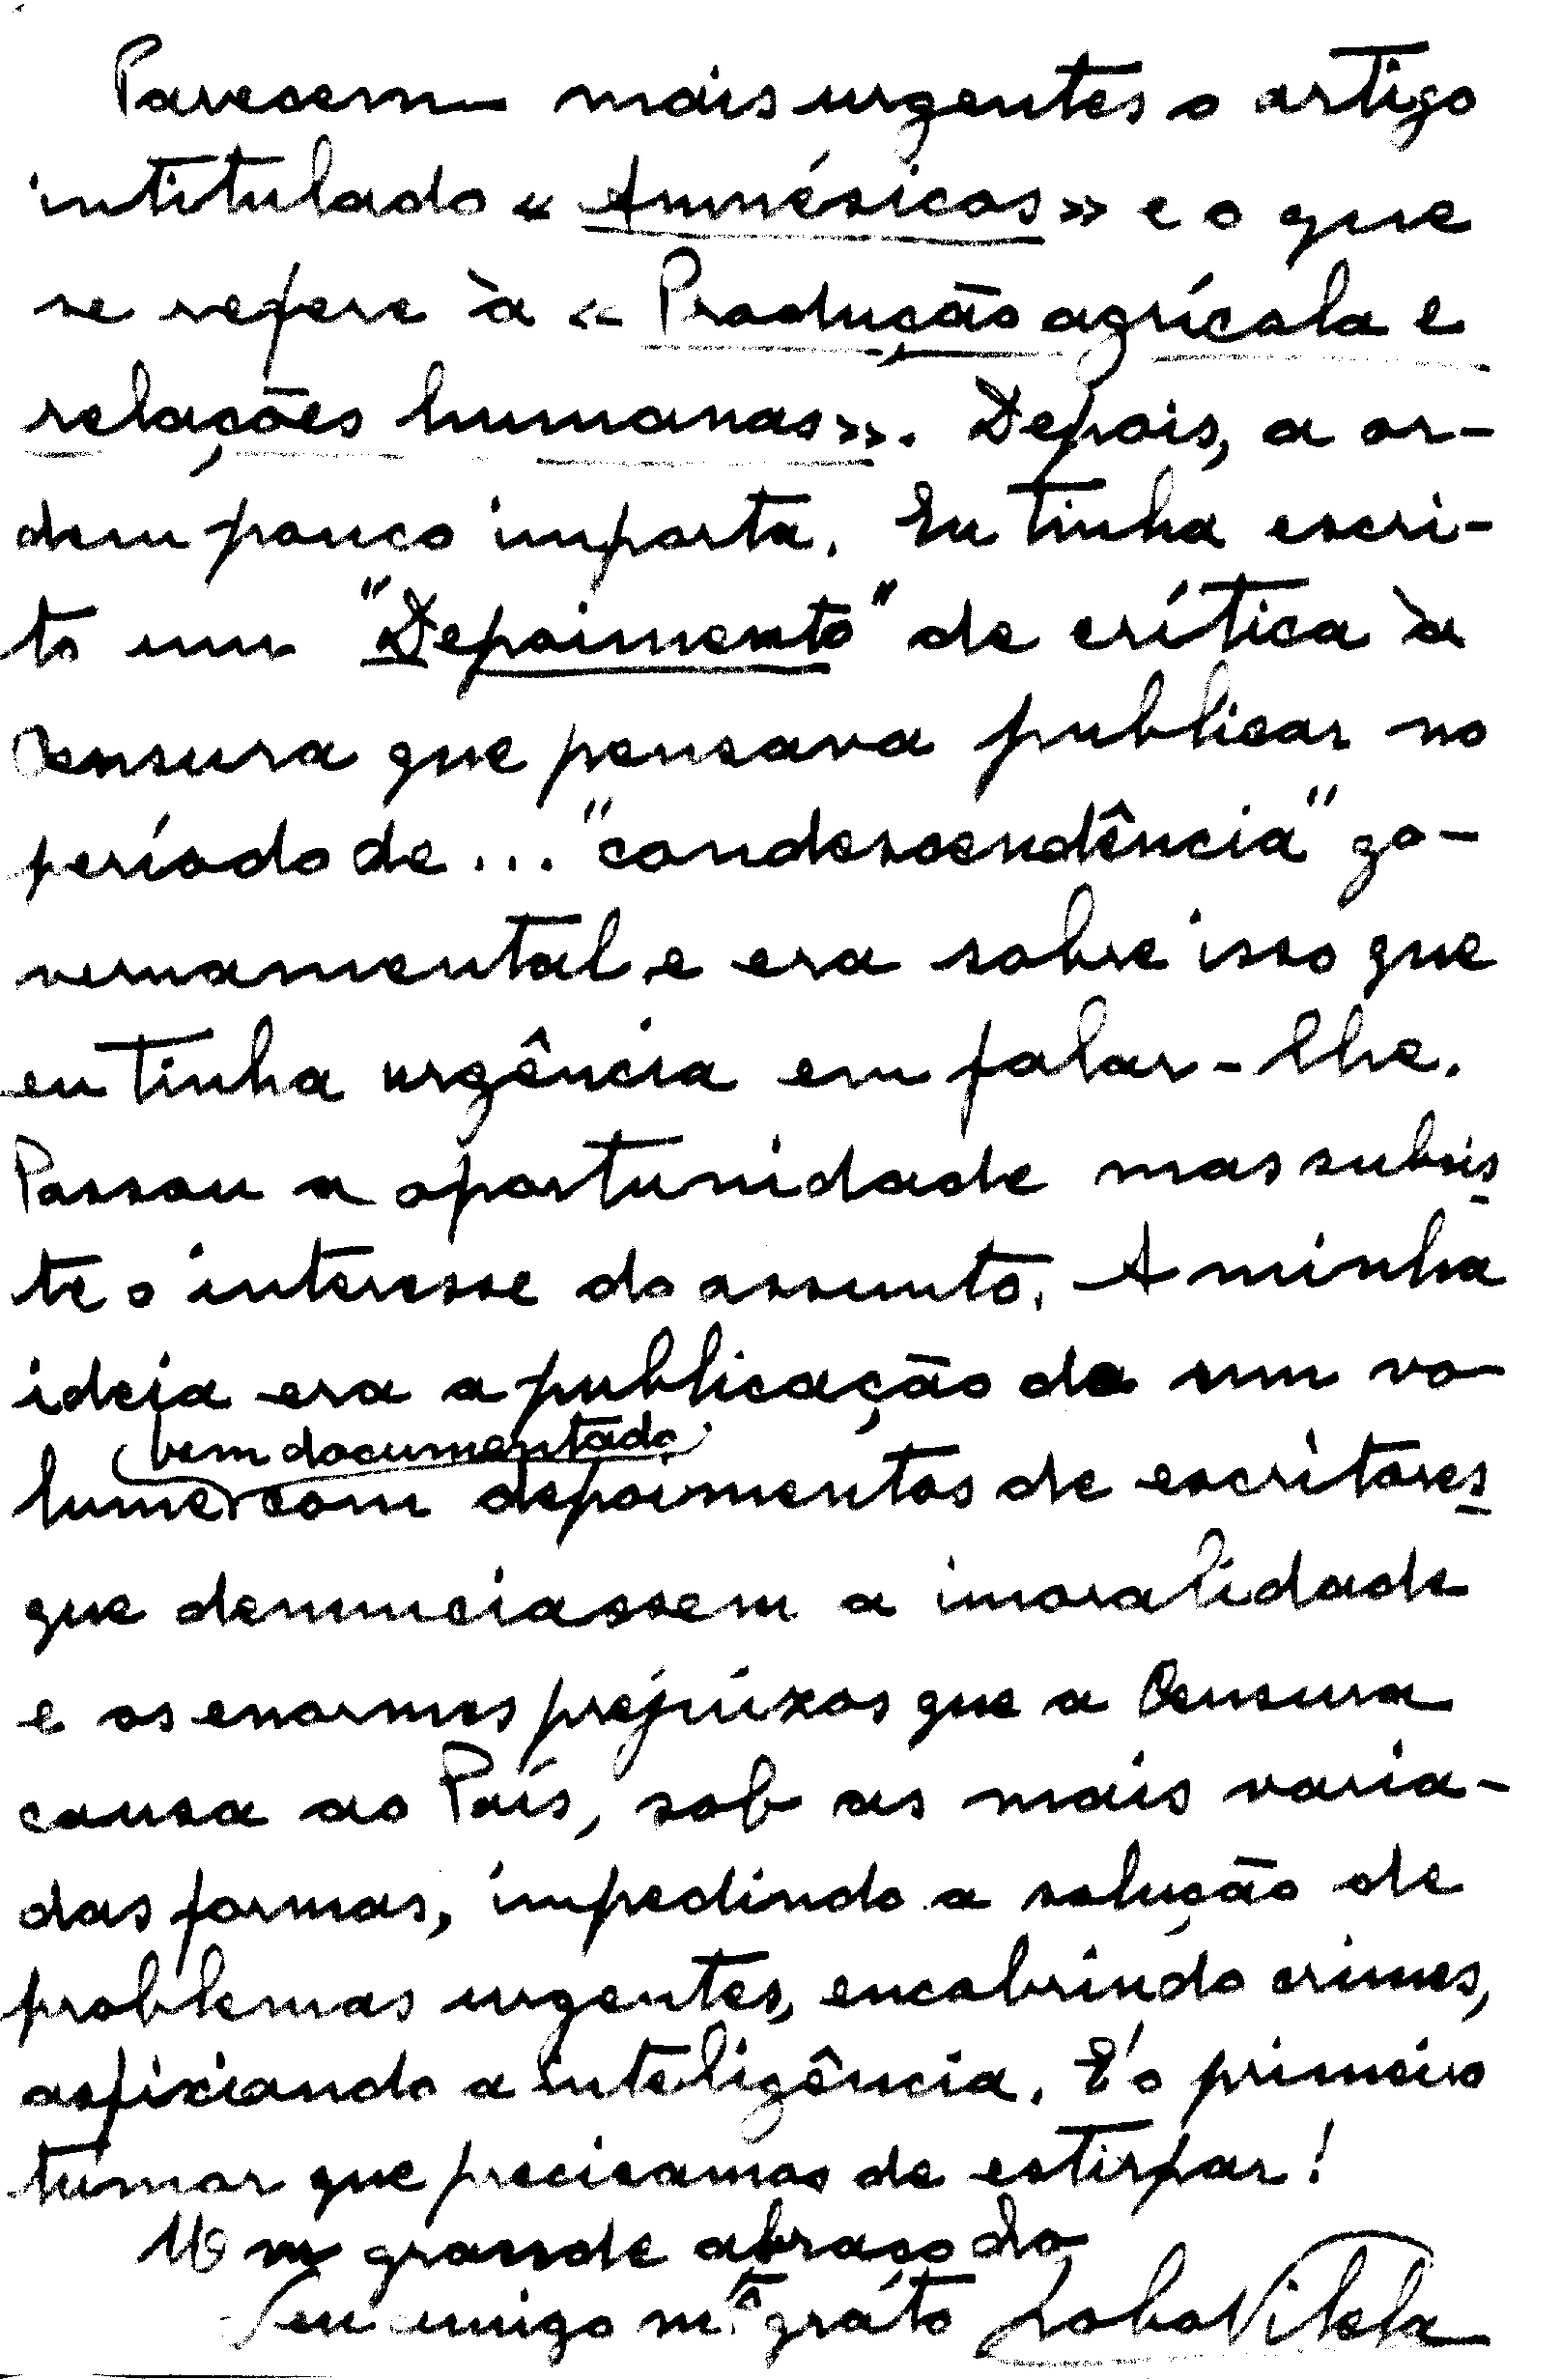 Parecem mais urgentes o artigo
intitulado « Amnésicos » e o que
se refere à « Produção agrícola e
relações humanas». Depois, a or-
dem pouco importa. Eu tinha escri-
to um "Depoimento" de crítica à
Censura que pensava publicar no
período de ... "condescendência" go-
vernamental e era sobre isso que
eu tinha urgência em falar-lhe.
Passou a oportunidade mas subsis
te o interesse do assunto. A minha
ideia era a publicação de um vo-
bem documentado
lume com depoimentos de escritores
que denunciassem a imoralidade
e os enormes prejuízos que a Censura
causa ao País, sob as mais varia-
das formas, impedindo a solução de
problemas urgentes, encobrindo crimes,
asfixiando a inteligência. É o primeiro
tumor que precisamos de estirpar!
Um grande abraço do
Seu amigo m.to gráto Lobo Vilela